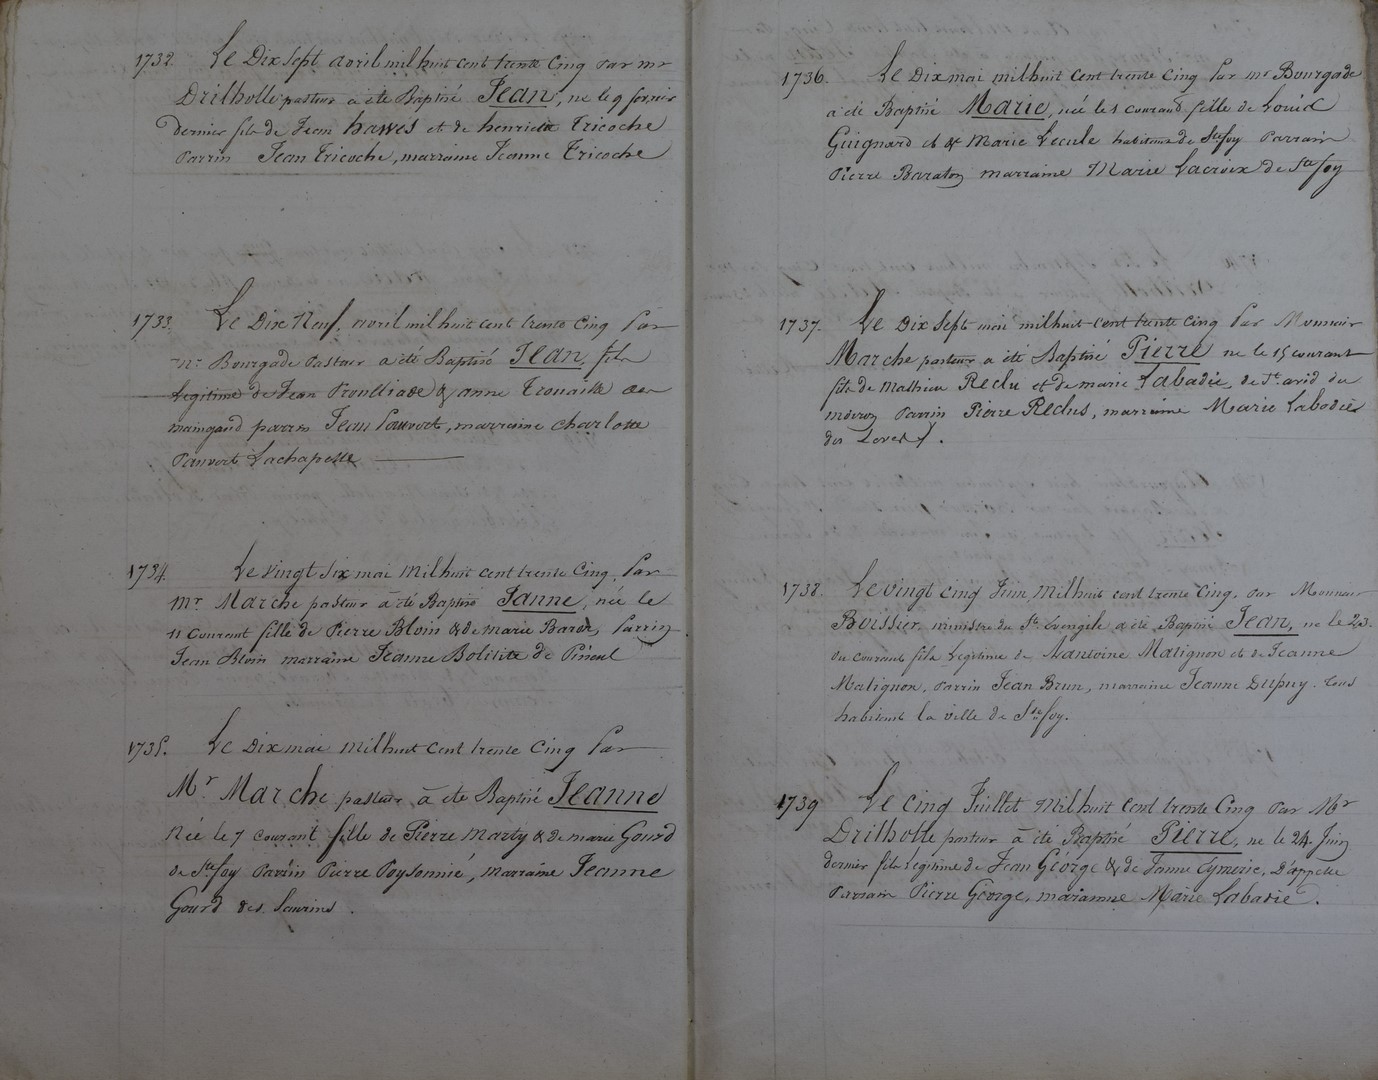 1732. Le Dix sept avril mil huit cent trente Cinq Par mr
Drilholle pasteur a été Baptisé Jean, né le 9 fevrier
dernier fils de Jean hawes et de henriette Tricoche
Parrin Jean Tricoche, marraine Jeanne Tricoche
1733. Le Dix Neuf, avril mil huit cent trente Cinq Par
Mr Bourgade Pasteur a été Baptisé Jean, fils
Legitime de Jean & anne
maingaud parrin Jean Pauvert, marraine Charlotte
Pauvert Lachapelle
1734. Le vingt six mai mil huit cent trente Cinq, Par
Mr Marche pasteur à été Baptisé Janne, née le
11 Courant fille de Pierre Bloin & de marie Barde, Parrin
Jean Bloin marraine Jeanne de Pineul
1735. Le Dix mai mil huit cent trente Cinq Par
Mr Marche pasteur à été Baptisé Jeanne
Née le 7 courant fille de Pierre Marty & de marie Gourd
de Ste foy Parrin Pierre Poysonnié, marraine Jeanne
Gourd des Saurins.
1736. Le Dix mai mil huit Cent trente Cinq Par mr Bourgade
a été Baptisé Marie, née le 1 courand fille de Louis
Guignard et de Marie Lecule habitans de Ste foy Parrain
Pierre Baraton marraine Marie Lacroix de Ste foy
1737. Le Dix sept mai mil huit cent trente cinq Par Monsieur
Marche pasteur a été Baptisé Pierre né le 15 courant
fils de Mathieu Reclu et de marie Labadie, de St avid du
moiron Parrin Pierre Reclus, marraine Marie Labadie
des
1738. Le vingt cinq Juin Mil huit cent trente Cinq, Par Monsieur
Boissier, ministre du St Evengile a été Baptisé Jean, né le 23.
du courant fils Legitime de Nantoine Matignon et de Jeanne
Matignon, Parrin Jean Brun, marraine Jeanne Dupuy. tous
habitent la ville de Ste foy.
1739 Le Cinq Juillet Mil huit Cent trente Cinq Par Mr
Drilholle pasteur à été Baptisé Pierre, né le 24 Juin
dernier fils Légitime de Jean George & de Janne Eymerie, D'appelle
Parrain Pierre George, marainne Marie Labadie.